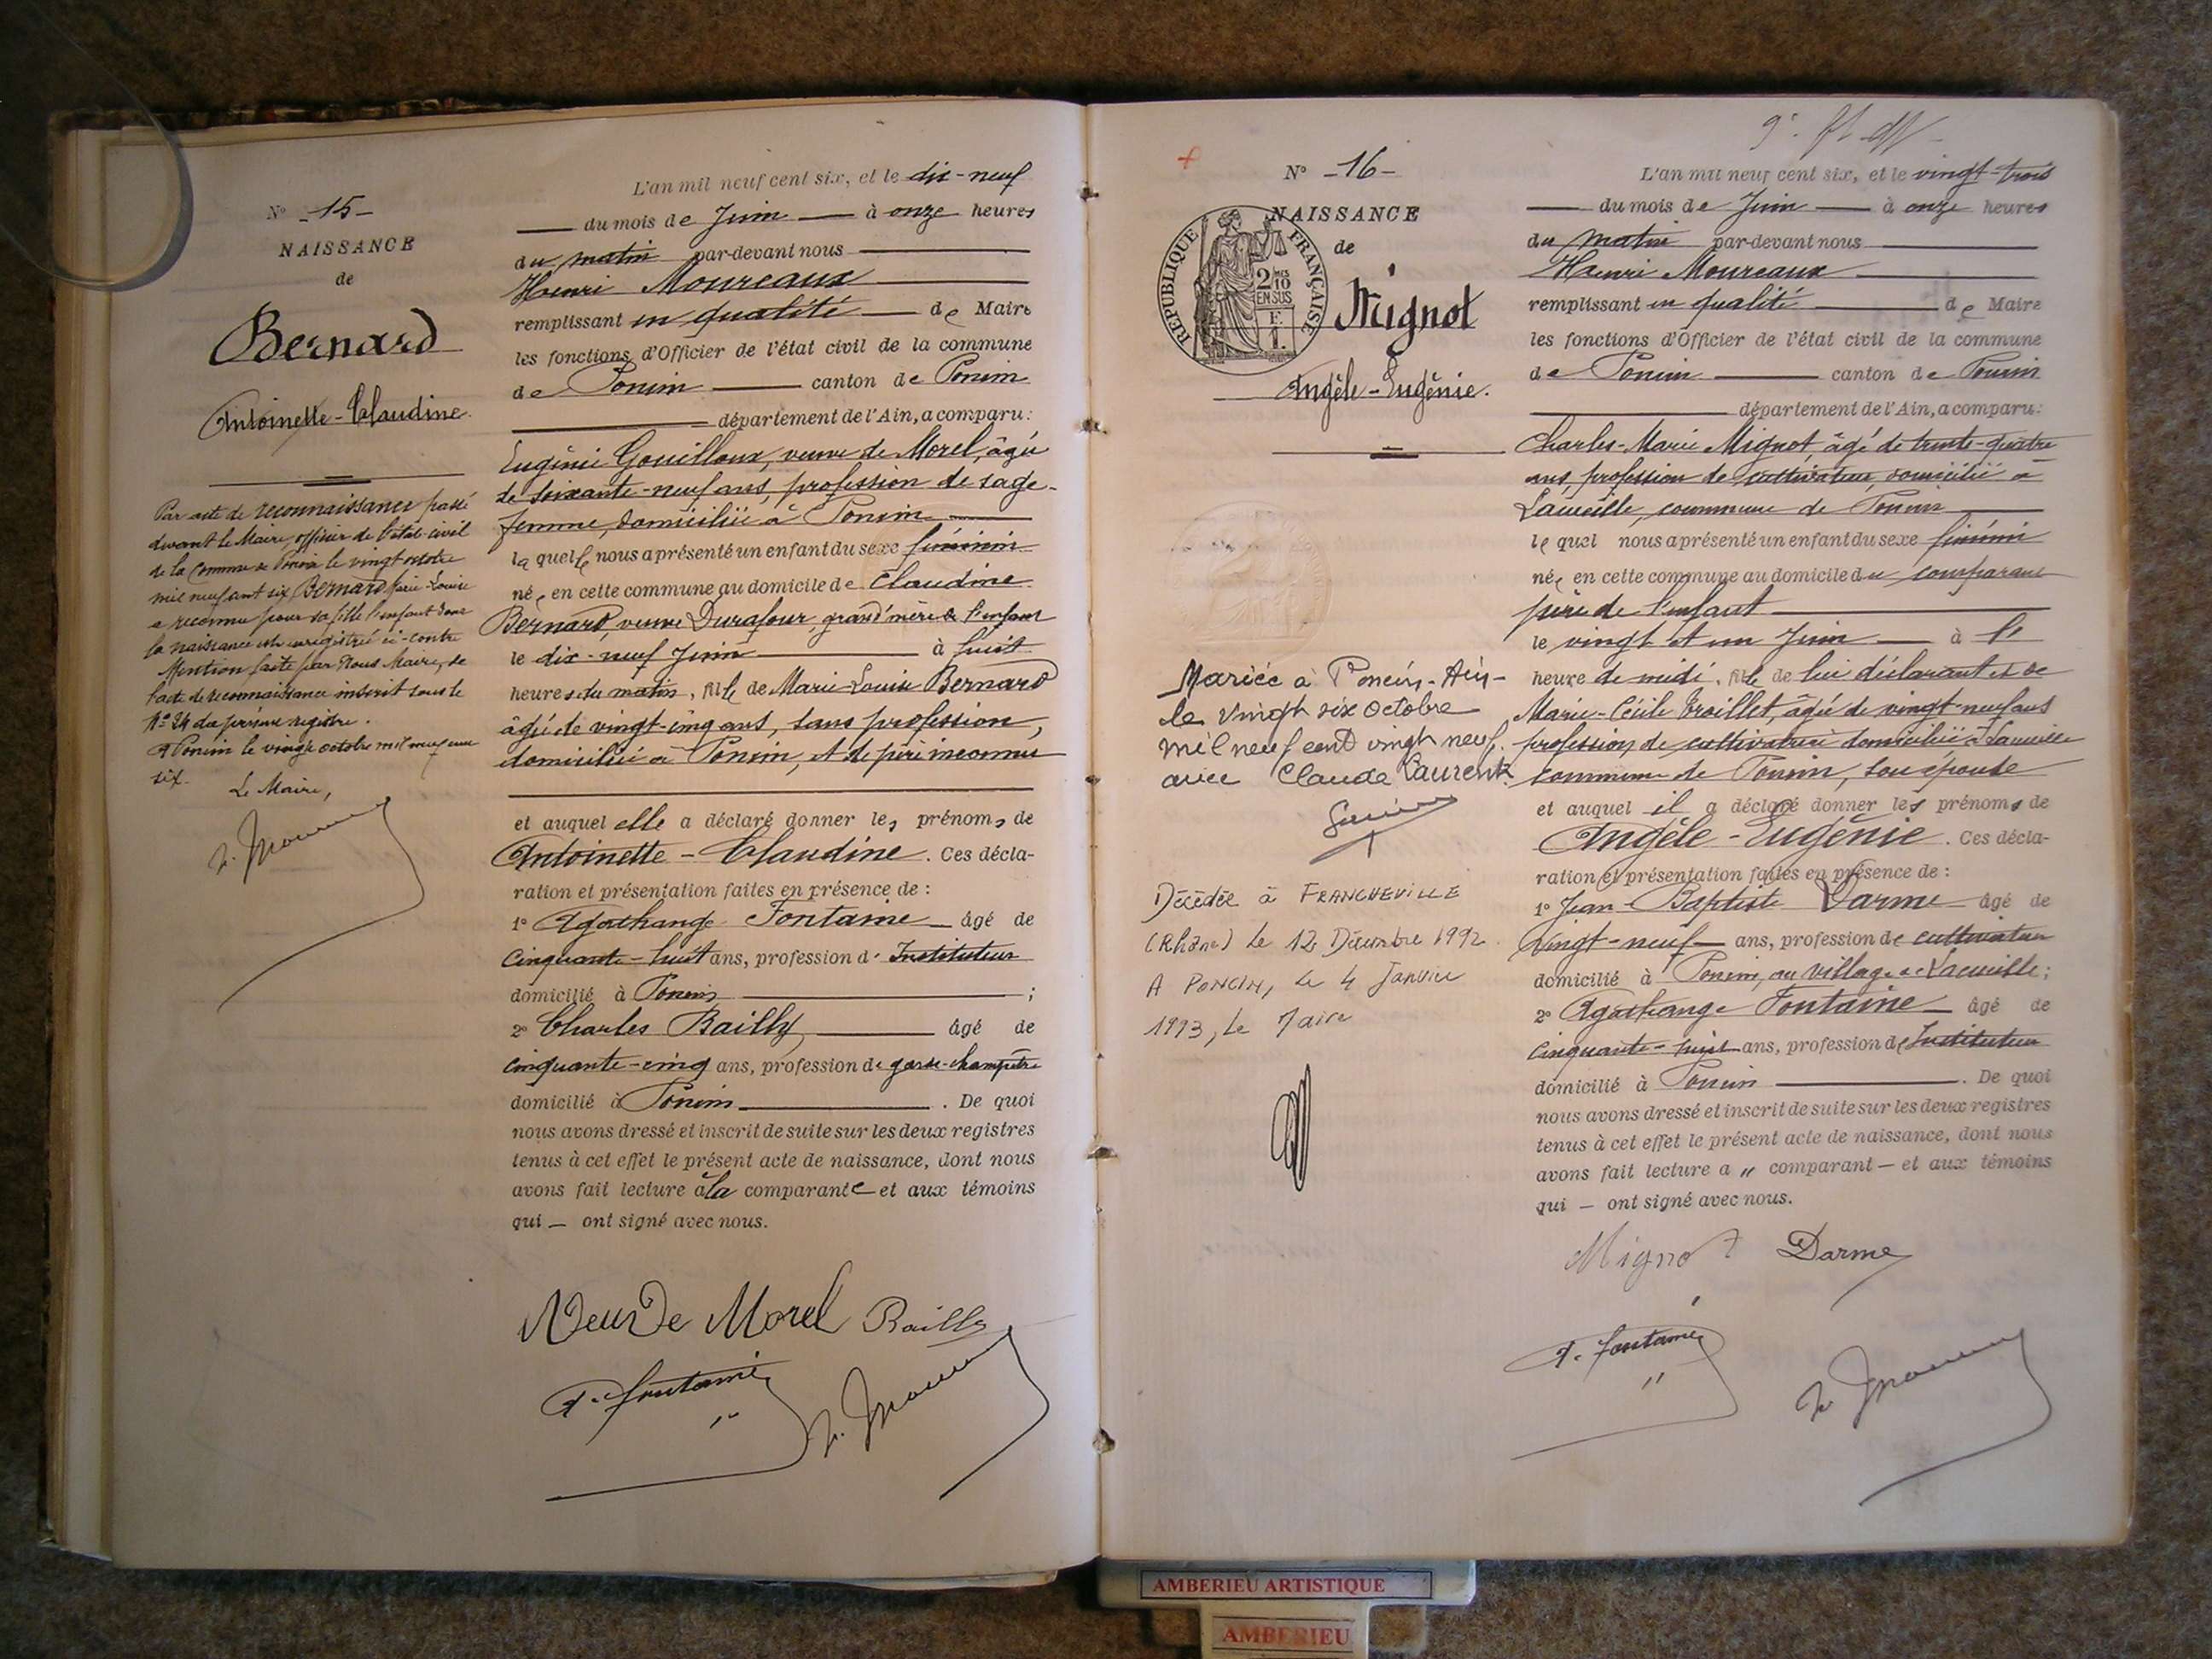 N° -15-
NAISSANCE
de
Bernard
Antoinette-Claudine.
Par acte de reconnaissance passé
devant le Maire, officier de l'état-civil
de la Commune de Poncin le vingt octobre
mil neuf cent six Bernard Marie-Louise
a reconnu pour sa fille l'enfant dont
la naissance est enregistrée ci-contre
Mention faite par Nous Maire, de
l'acte de reconnaissance inscrit sous le
N° 24 du présent registre.
A Poncin le vingt octobre mil neuf cent
six.
Le Maire,
L'an mil neuf cent six, et le dix-neuf
du mois de Juin à onze heures
du matin par-devant nous
Henri Moureaux
remplissant en qualité de Maire
les fonctions d'Officier de l'état civil de la commune
de Poncin canton de Poncin
département de l'Ain, a comparu:
Eugénie Gouilloux, veuve de Morel, âgée
de soixante-neuf ans, profession de sage-
femme, domiciliée à Poncin
laquelle nous a présenté un enfant du sexe féminin
né, en cette commune au domicile de Claudine
Bernard, veuve Durafour, grand'mère de l'enfant
le dix-neuf Juin à huit
heures du matin, fille de Marie-Louise Bernard
âgée de vingt-cinq ans, sans profession,
domiciliée à Poncin, et de père inconnu
et auquel elle a déclaré donner les prénoms de
Antoinette-Claudine. Ces décla-
ration et présentation faites en présence de :
1° Agathange Fontaine âgé de
cinquante-huit ans, profession d'Instituteur
domicilié à Poncin ;
2° Charles Bailly, âgé de
cinquante-cinq ans, profession de garde-champêtre
domicilié à Poncin. De quoi
nous avons dressé et inscrit de suite sur les deux registres
tenus à cet effet le présent acte de naissance, dont nous
avons fait lecture à la comparante et aux témoins
qui — ont signé avec nous.
Veuve De Morel Bailly
A. Fontaine
N° -16-
NAISSANCE
de
REPUBLIQUE FRANÇAISE
2 MES
10
EN SUS
Mignot
Angèle-Eugénie.
Mariée à Poncin-Ain-
le vingt six octobre
mil neuf cent vingt neuf.
avec Claude Laurent.
Décédée à FRANCHEVILLE
(Rhône) Le 12 Décembre 1992.
A PONCIN, Le 4 Janvier
1993, Le Maire
L'an mil neuf cent six, et le vingt-trois
du mois de Juin à onze heures
du matin par-devant nous
Henri Moureaux
remplissant en qualité de Maire
les fonctions d'Officier de l'état civil de la commune
de Poncin canton de Poncin
département de l'Ain, a comparu:
Charles-Marie Mignot, âgé de trente-quatre
ans, profession de cultivateur, domicilié à
Lacueille, commune de Poncin
lequel nous a présenté un enfant du sexe féminin
née en cette commune au domicile du comparant
père de l'enfant
le vingt et un Juin à l'
heure de midi, fille de lui déclarant et de
Marie-Cécile Troillet, âgée de vingt-neuf ans
profession de cultivatrice domiciliée à Lacueille
commune de Poncin, son épouse
et auquel il a déclaré donner les prénoms de
Angèle-Eugénie. Ces décla-
ration et présentation faites en présence de :
1° Jean-Baptiste Darme âgé de
vingt-neuf ans, profession de cultivateur
domicilié à Poncin, au village de Lacueille;
2° Agathange Fontaine âgé de
cinquante-huit ans, profession d'Instituteur
domicilié à Poncin. De quoi
nous avons dressé et inscrit de suite sur les deux registres
tenus à cet effet le présent acte de naissance, dont nous
avons fait lecture a „ comparant — et aux témoins
qui — ont signé avec nous.
Mignot Darme
A. Fontaine
AMBERIEU ARTISTIQUE
AMBERIEU